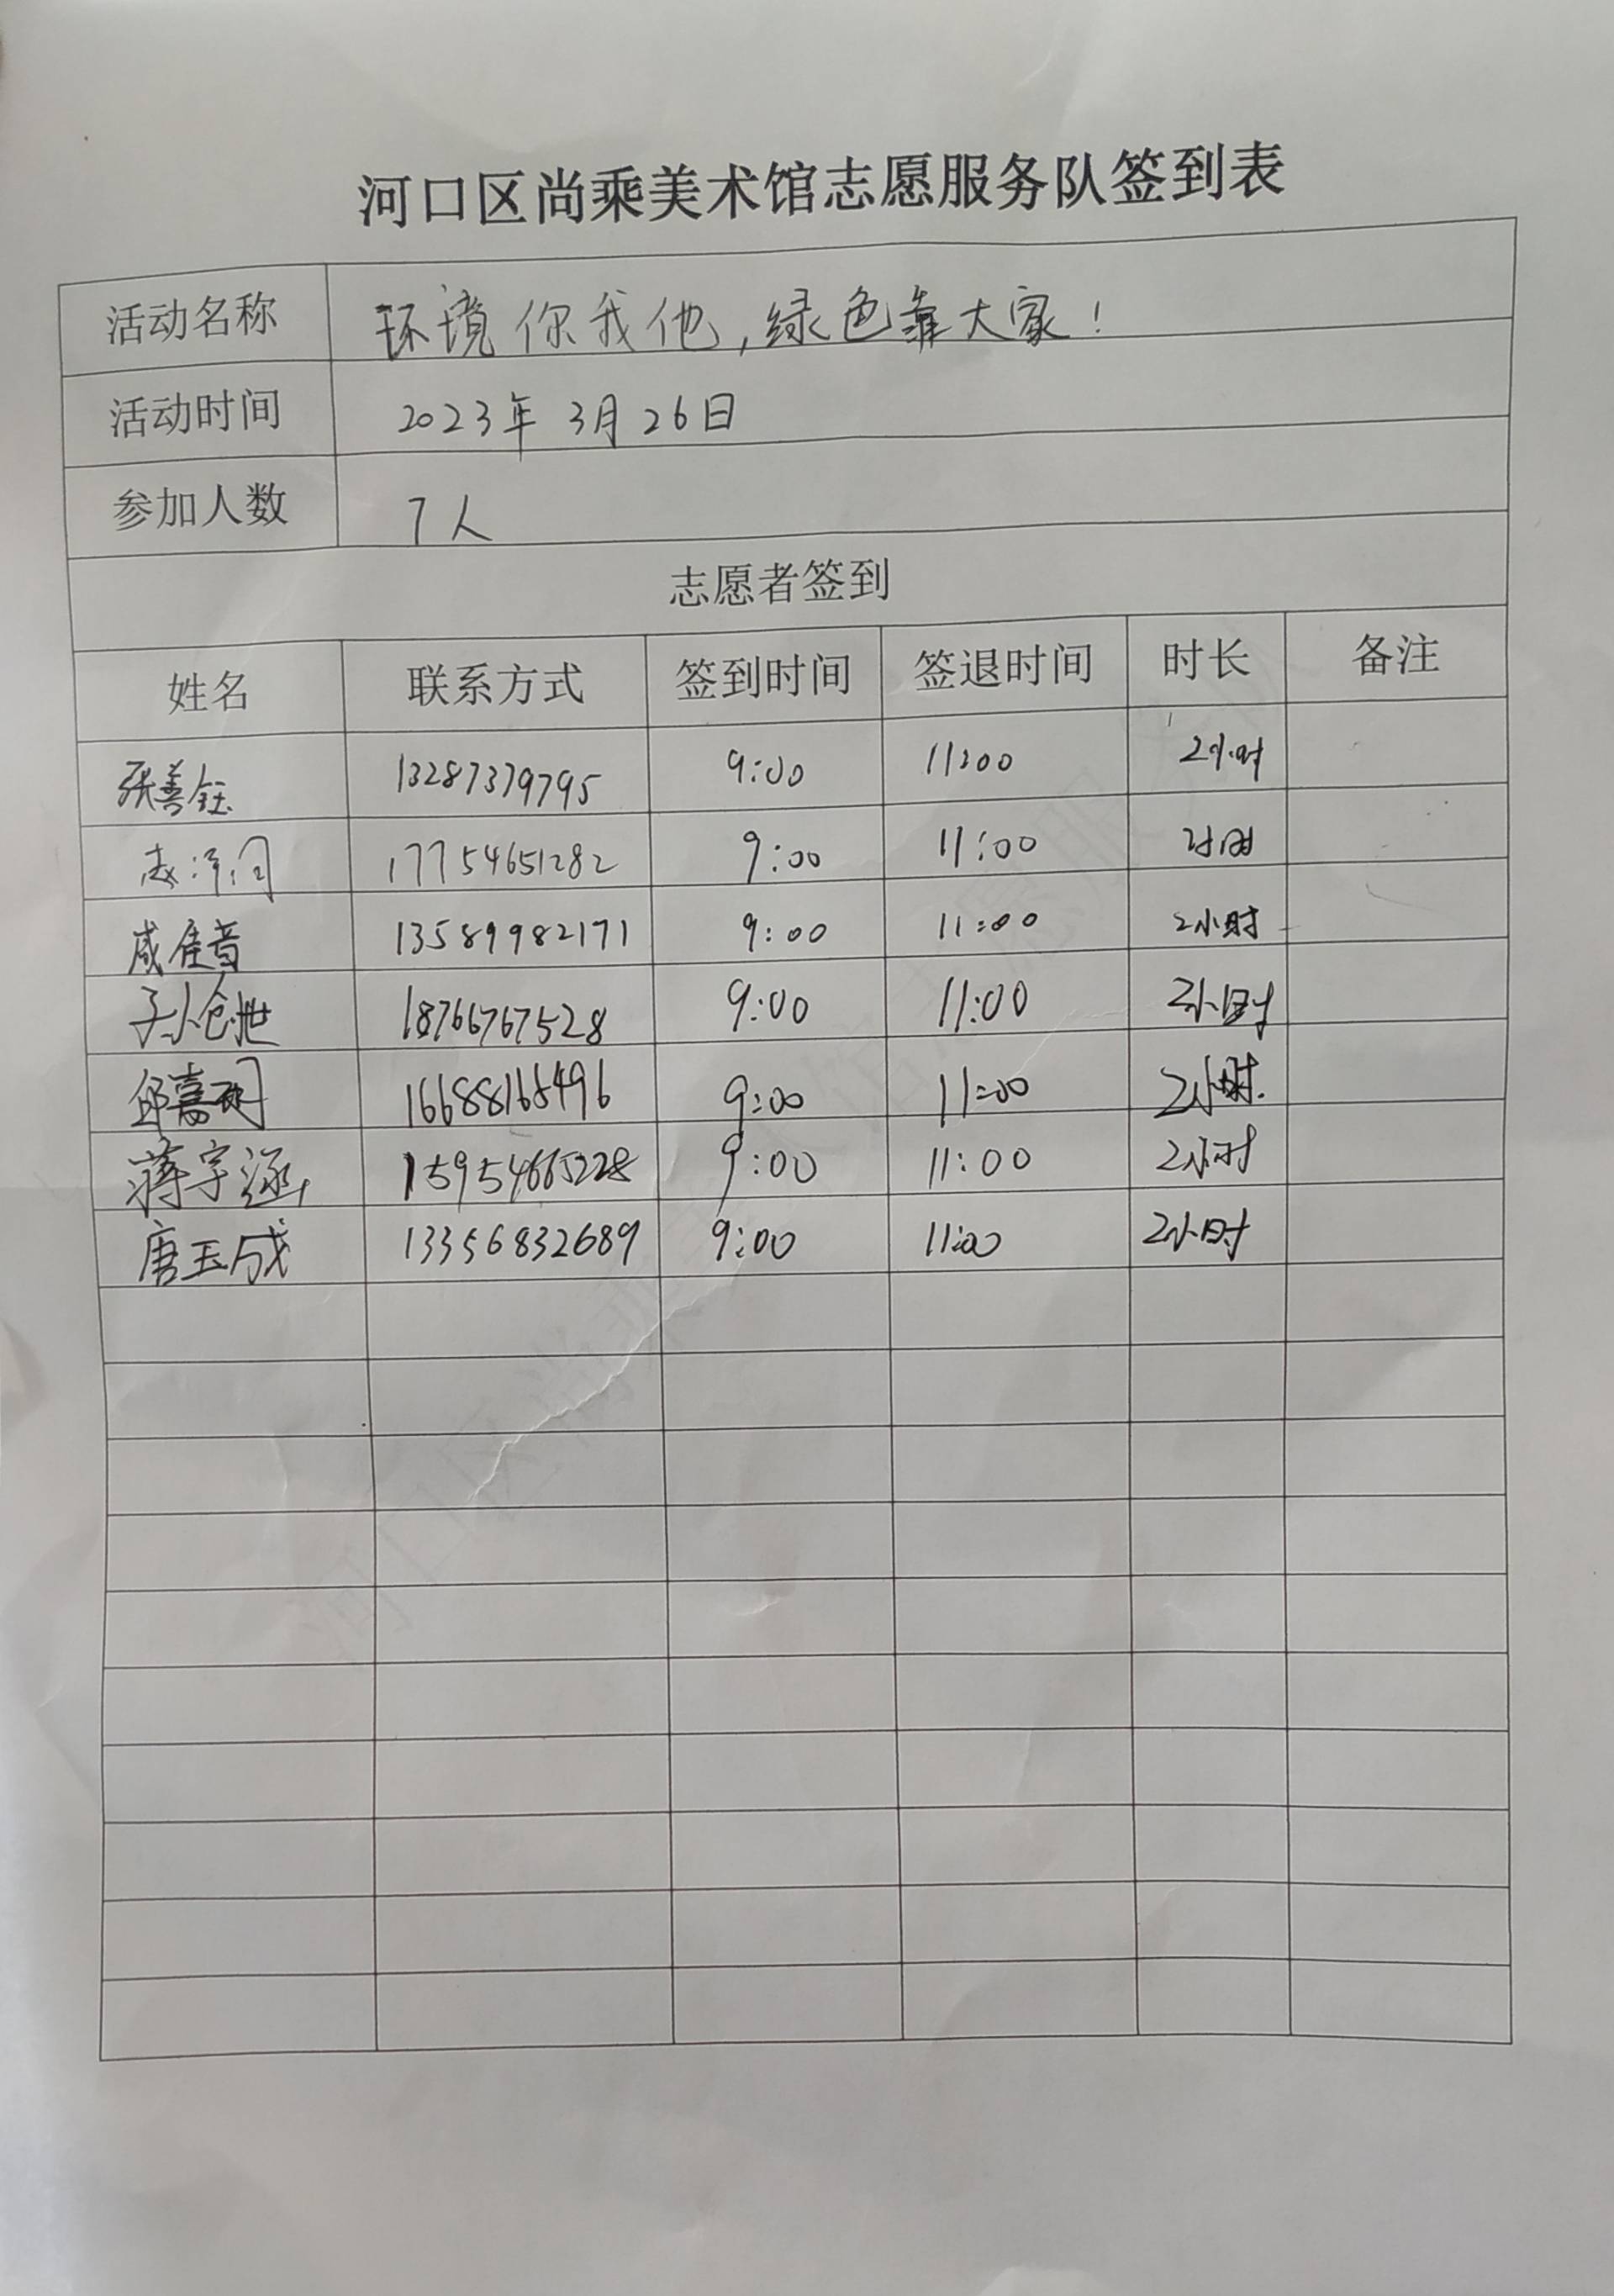 河口区尚乘美术馆志愿服务队签到表
活动名称 环境你我他,绿色靠大家!
活动时间 2023年3月26日
参加人数 7人
志愿者签到
姓名 联系方式 签到时间 签退时间 时长 备注
张善钰 13287379795 9:00 11:00 2小时
17754651282 9:00 11:00 2小时
咸佳音 13589982171 9:00 11:00 2小时
18766767528 9:00 11:00 2小时
邱嘉 16688165496 9:00 11:00 2小时.
蒋宇涵 15954665228 9:00 11:00 2小时
唐玉成 13356832689 9:00 11:00 2小时